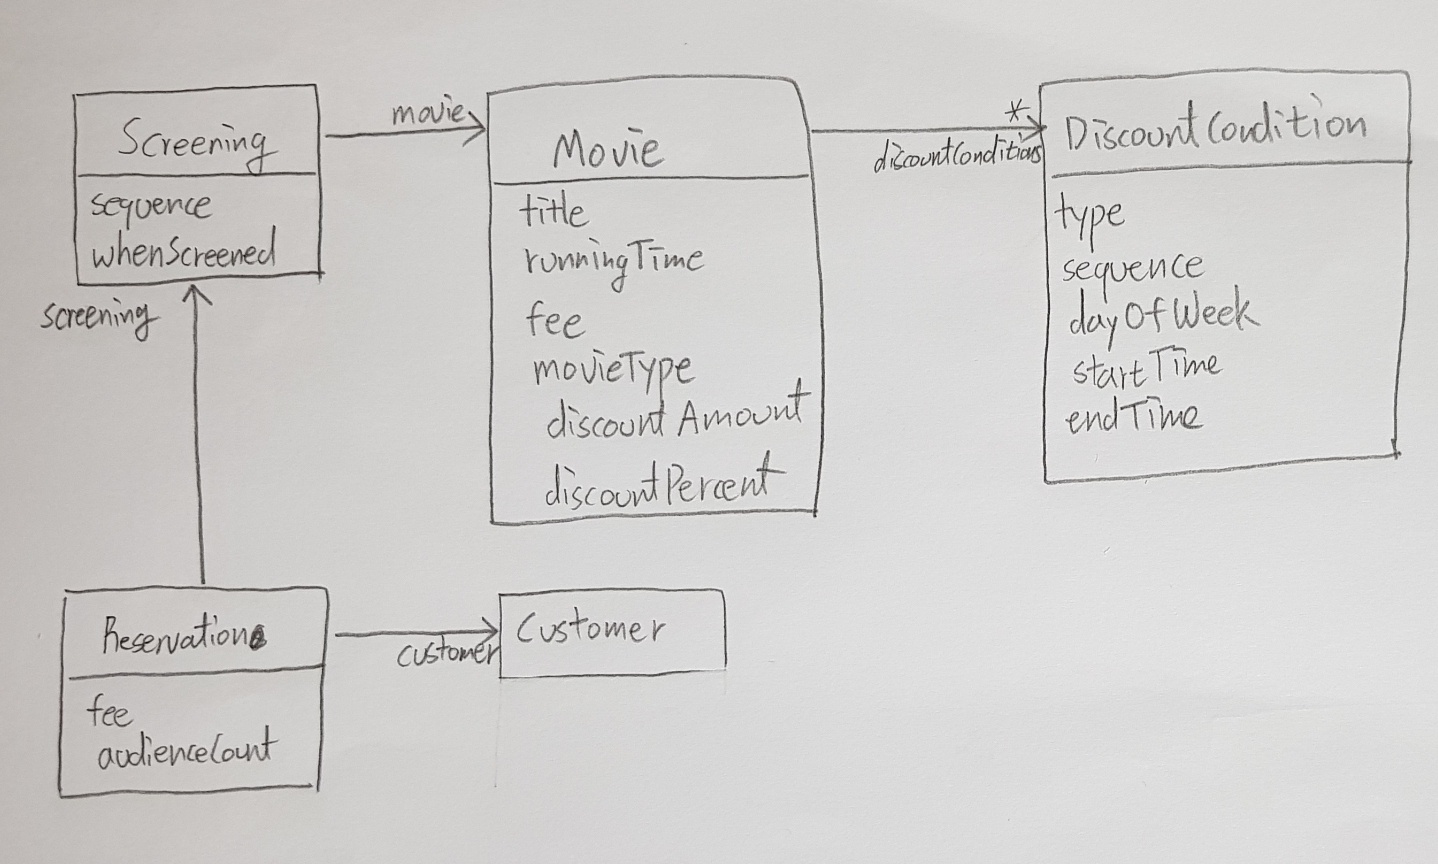 Screening
sequence
whenScreened
movie
Movie
title
runningTime
fee
movieType
discountAmount
discountPercent
*
discountConditions
DiscountCondition
type
sequence
dayOfWeek
startTime
endTime
screening
Reservation
fee
audienceCount
customer
Customer